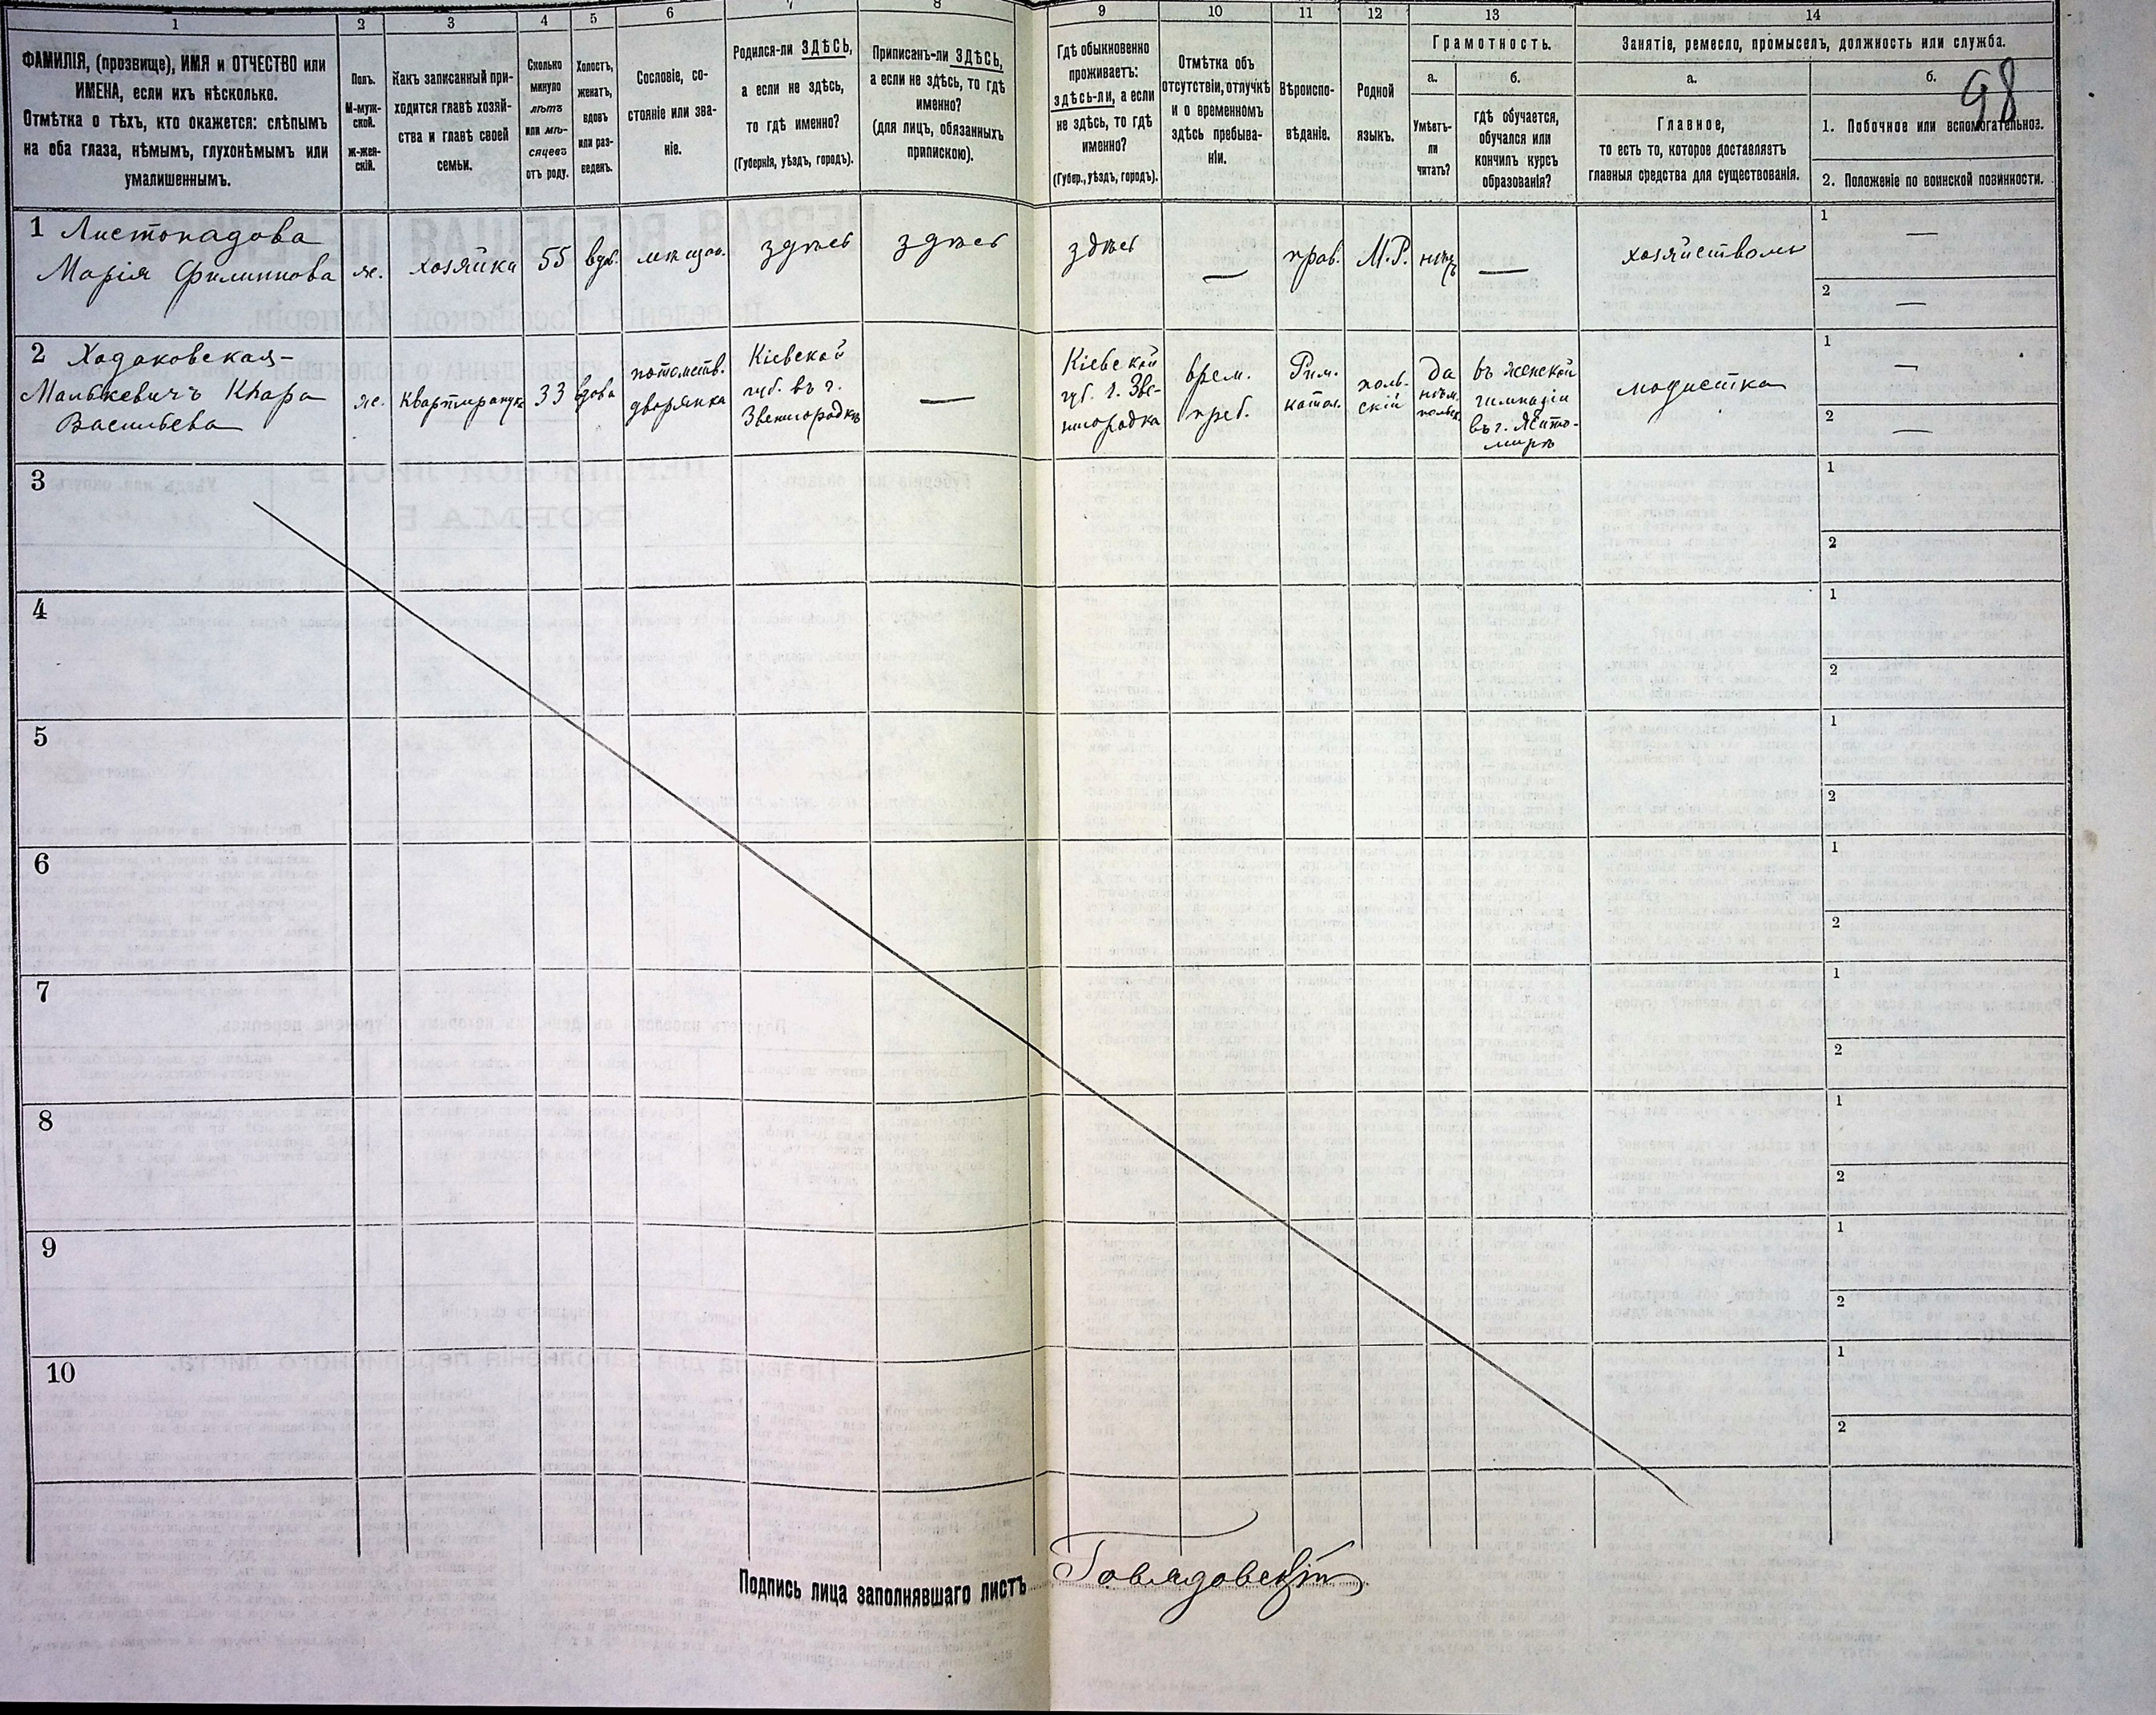 1
2
3
4
5
6
7
8
9
10
11
12
13
14
ФАМИЛІЯ, (прозвище), ИМЯ и ОТЧЕСТВО или
ИМЕНА, если ихъ нѣсколько.
Отмѣтка о тѣхъ, кто окажется: слѣпымъ
на оба глаза, нѣмымъ, глухонѣмымъ или
умалишеннымъ.
Полъ.
М-муж-
ской.
Ж-жен-
скій.
Какъ записанный при-
ходится главѣ хозяй-
ства и главѣ своей
семьи.
Сколько
минуло
лѣтъ
или мѣ-
сяцевъ
отъ роду.
Холостъ,
женатъ,
вдовъ
или раз-
веденъ.
Сословіе, со-
стояніе или зва-
ніе.
Родился-ли ЗДѢСЬ,
а если не здѣсь,
то гдѣ именно?
(Губернія, уѣздъ, городъ).
Приписанъ-ли ЗДѢСЬ,
а если не здѣсь, то гдѣ
именно?
(для лицъ, обязанныхъ
припискою).
Гдѣ обыкновенно
проживаетъ:
здѣсь-ли, а если
не здѣсь, то гдѣ
именно?
(Губер., уѣздъ, городъ).
Отмѣтка объ
отсутствіи, отлучкѣ
и о временномъ
здѣсь пребыва-
ніи.
Вѣроиспо-
вѣданіе.
Родной
языкъ.
Грамотность.
а.
б.
Умѣетъ-
ли
читать?
гдѣ обучается,
обучался или
кончилъ курсъ
образованія?
Занятіе, ремесло, промыселъ, должность или служба.
а.
б.
98
Главное,
то есть то, которое доставляетъ
главныя средства для существованія.
1. Побочное или вспомогательное.
2. Положеніе по воинской повинности.
1 Листопадова
Марія Филиппова
ж.
хозяйка
55
вдов.
мѣщан.
здѣсь
здѣсь
здѣсь
—
прав.
М.Р.
нѣтъ
—
хозяйствомъ
1 —
2 —
2 Ходаковская-
Малькевичъ Клара
Васильева
ж.
квартирантка
33
вдова
потомств.
дворянка
Кіевской
губ. въ г.
Звенигородкѣ
—
Кіевской
губ. г. Зве-
нигородка
врем.
преб.
Рим.
катол.
поль-
скій
да
въ женской
гимназіи
въ г. Жито-
мирѣ
модистка
1 —
2 —
3
1
2
4
1
2
5
1
2
6
1
2
7
1
2
8
1
2
9
1
2
10
1
2
Подпись лица заполнявшаго листъ